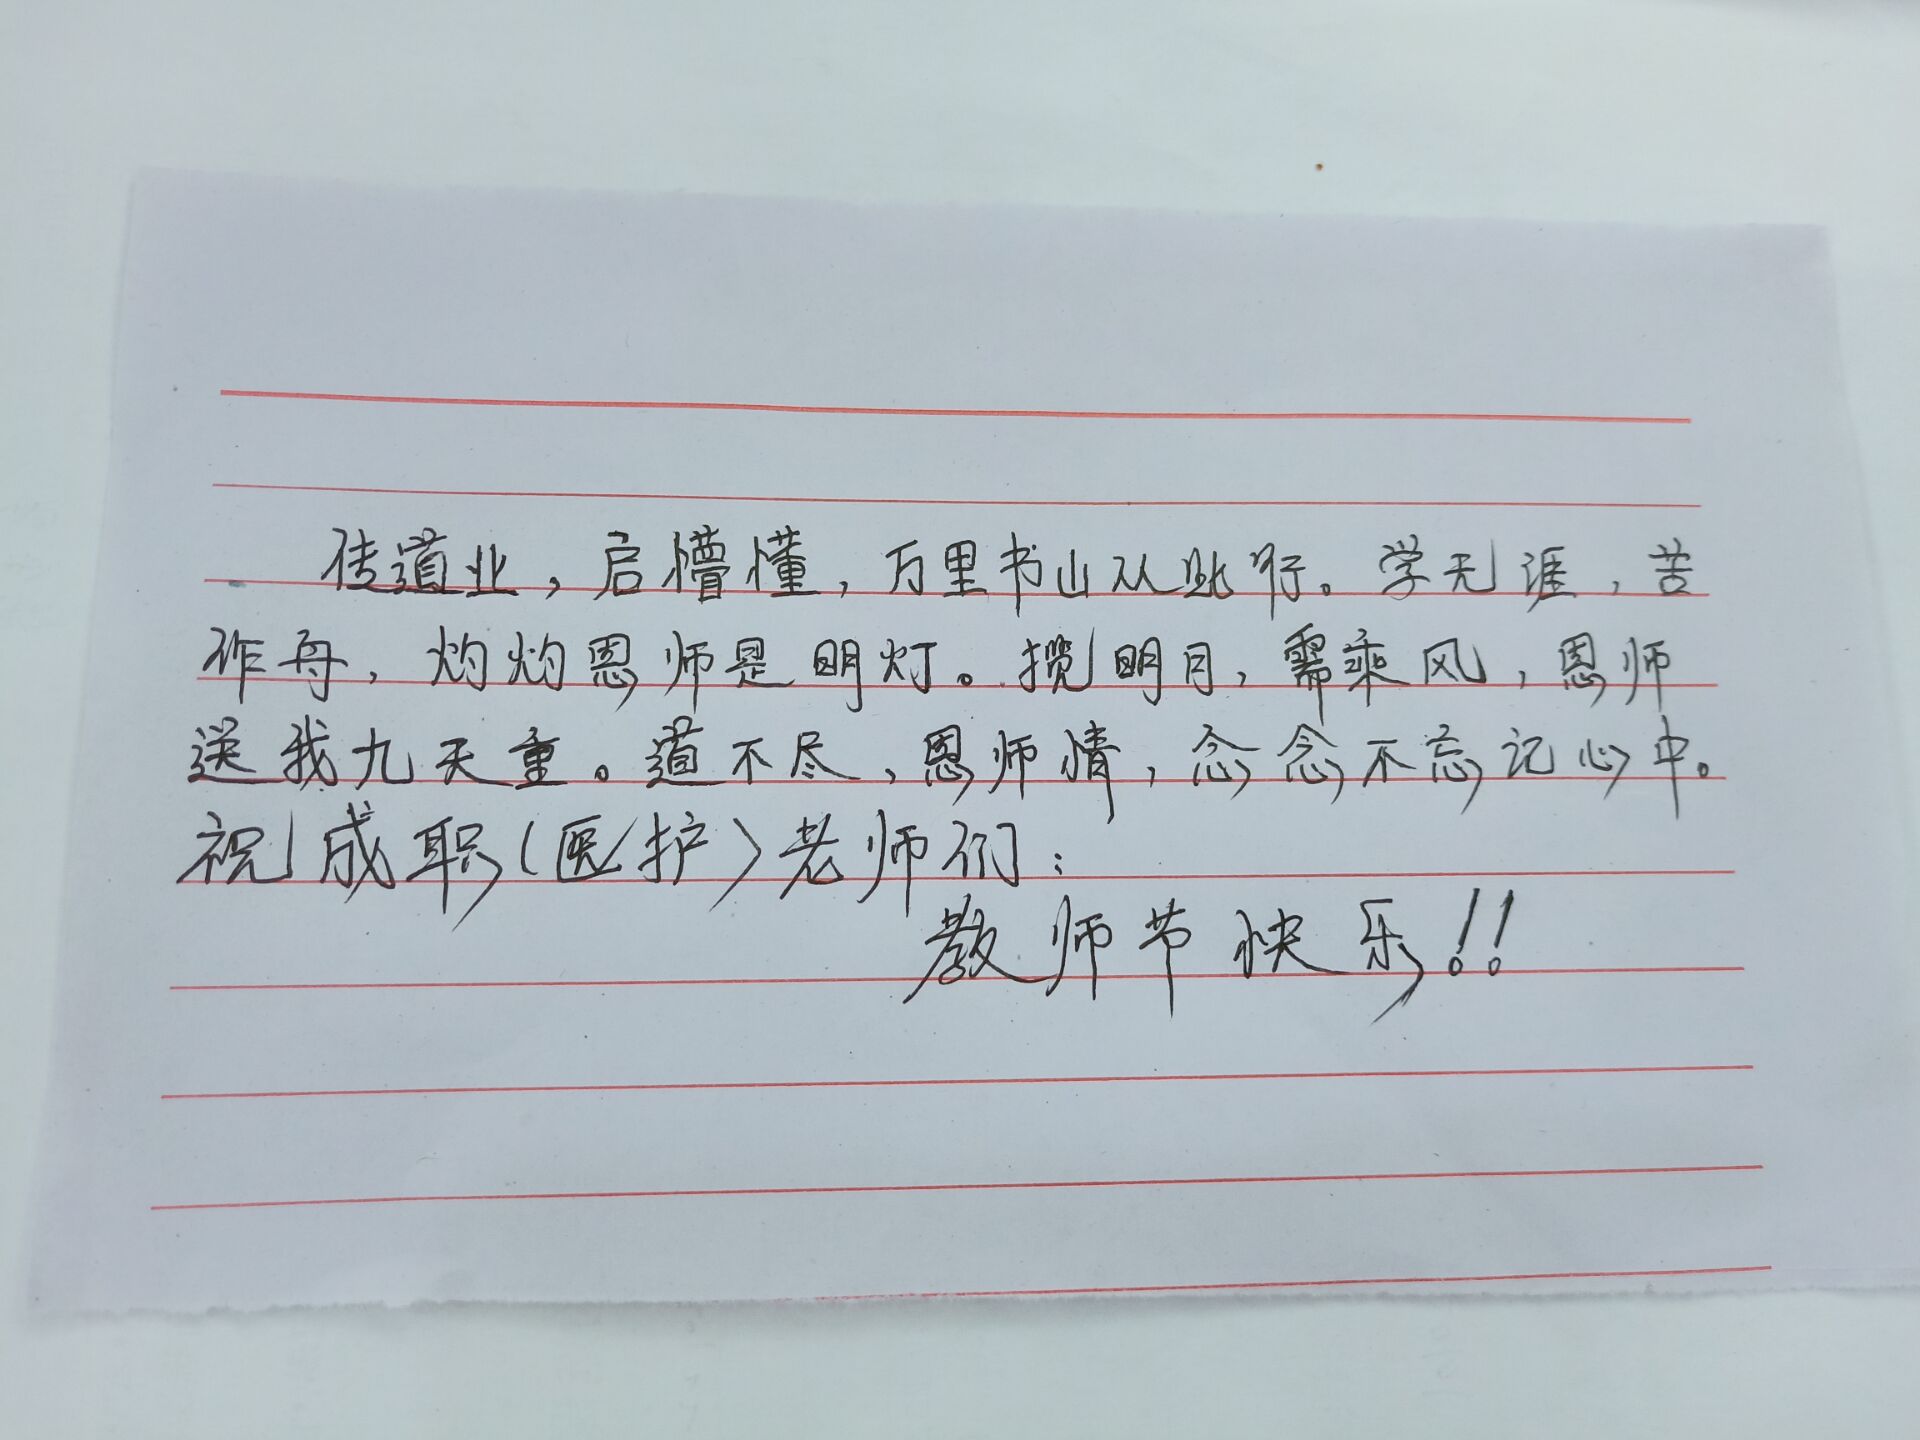 传道业，启懵懂，万里书山从此行。学无涯，苦
作舟，灼灼恩师是明灯。揽明月，需乘风，恩师
送我九天重。道不尽，恩师情，念念不忘记心中。
祝成职（医护）老师们：
教师节快乐！！